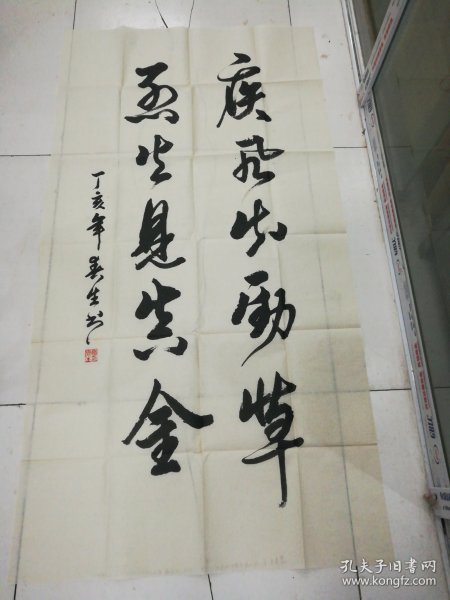 疾风知劲草
烈火見真金
丁亥年春生书
孔夫子旧书网
www.kongfz.com